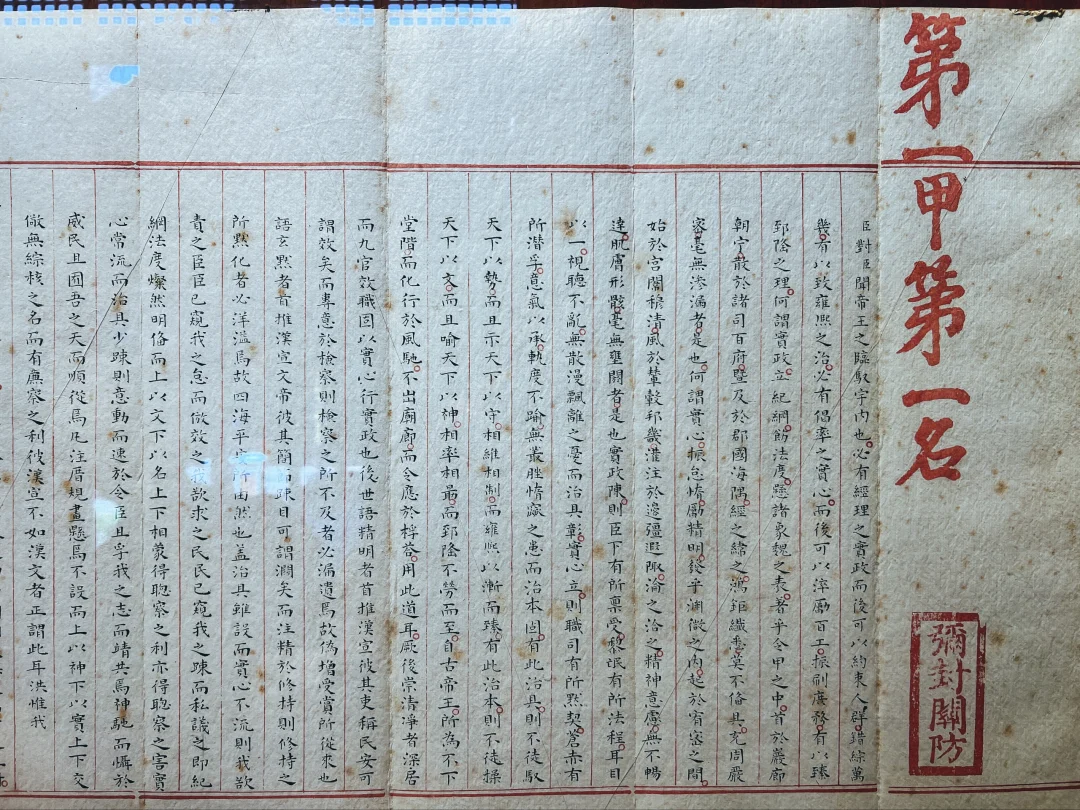 第一甲第一名
彌封關防
臣對臣聞帝王之臨馭宇內也必有經理之實政而後可以約束人群錯綜萬
幾有以致雍熙之治必有倡率之實心而後可以淬勵百工振刷庶務有以臻
郅隆之理何謂實政立紀綱飭法度懸諸象魏之表著乎令甲之中首於巖廊
朝宁散於諸司百府暨及於郡國海隅經之緯之鴻鉅纖悉莫不備具充周嚴
密毫無滲漏者是也何謂實心振怠惰勵精明發乎淵微之內起於宥密之間
始於宮闈穆清風於輦轂邦畿灌注於邊疆遐陬淪之洽之精神意慮無不暢
達肌膚形骸毫無壅閼者是也實政陳則臣下有所稟受黎氓有所法程耳目
以一視聽不亂無散漫飄離之憂而治具彰實心立則職司有所默契蒼赤有
所潛孚意氣以承軌度不踰無叢脞惰窳之患而治本固有此治具則不徒馭
天下以勢而且示天下以守相維相制而雍熙以漸而臻有此治本則不徒操
天下以文而且喻天下以神相率相最而郅隆不勞而至自古帝王所為不下
堂階而化行於風馳不出廟廊而令應於桴荅用此道耳厥後崇清淨者深居
而九官效職固以實心行實政也後世語精明者首推漢宣彼其吏稱民安可
謂效矣而專意於檢察則檢察之所不及者必漏遺焉故偽增受賞所從來也
語玄默者首推漢宣文帝彼其簡節疎目可謂濶矣而注精於修持則修持之
所默化者必洋溢焉故四海平安所由然也盖治具雖設而實心不流則我欲
責之臣臣已窺我之怠而倣效之我欲求之民民已窺我之疎而私議之即紀
綱法度燦然明備而上以文下以名上下相蒙得聰察之利亦得聰察之害實
心常流而治具少踈則意動而速於令臣且孚我之志而靖共焉神馳而懾於
威民且囿吾之天而順從焉凡注厝規畫懸焉不設而上以神下以實上下交
儆無綜核之名而有廉察之利彼漢宣不如漢文者正謂此耳洪惟我